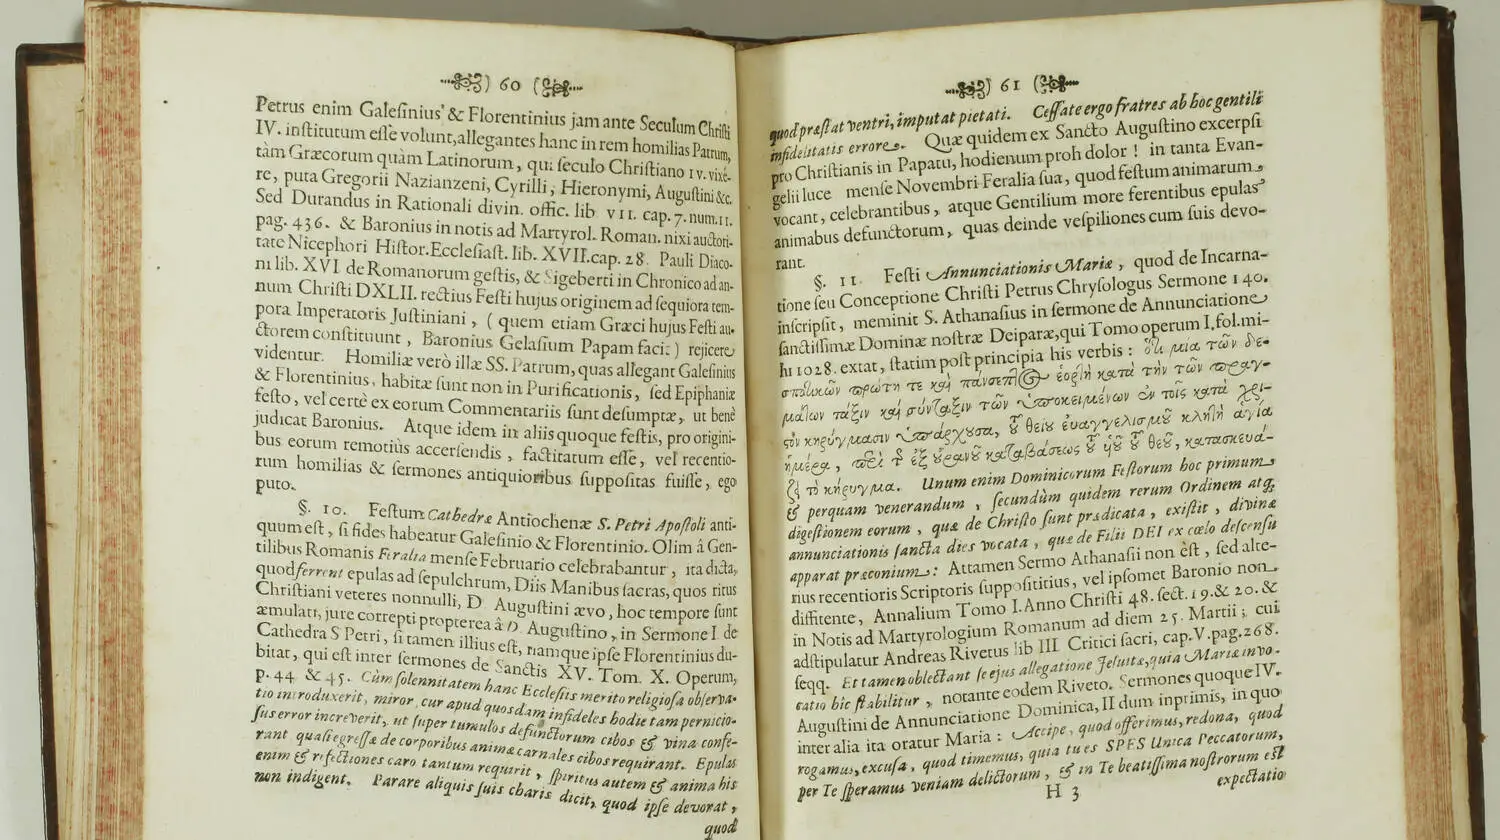 60
Petrus enim Galeſinius & Florentinius jam ante Seculum Chriſti
IV. inſtitutum eſſe volunt, allegantes hanc in rem homilias Patrum,
tàm Græcorum quàm Latinorum, qui ſeculo Chriſtiano IV. vixê-
re, puta Gregorii Nazianzeni, Cyrilli, Hieronymi, Auguſtini &c.
Sed Durandus in Rationali divin. offic. lib VII. cap. 7. num. 11.
pag. 436. & Baronius in notis ad Martyrol. Roman. nixi auctori-
tate Nicephori Hiſtor. Eccleſiaſt. lib. XVII. cap. 28. Pauli Diaco-
ni lib. XVI de Romanorum geſtis, & Sigeberti in Chronico ad an-
num Chriſti DXLII. rectius Feſti hujus originem ad ſequiora tem-
pora Imperatoris Juſtiniani, (quem etiam Græci hujus Feſti au-
ctorem conſtituunt, Baronius Gelaſium Papam facit) rejicere
videntur. Homiliæ verò illæ SS. Patrum, quas allegant Galeſinius
& Florentinius, habitæ ſunt non in Purificationis, ſed Epiphaniæ
feſto, vel certè ex eorum Commentariis ſunt deſumptæ, ut benè
judicat Baronius. Atque idem in aliis quoque feſtis, pro origini-
bus eorum remotiùs accerſendis, factitatum eſſe, vel recentio-
rum homilias & ſermones antiquioribus ſuppoſitas fuiſſe, ego
puto.
§. 10. Feſtum Cathedræ Antiochenæ S. Petri Apoſtoli anti-
quum eſt, ſi fides habeatur Galeſinio & Florentinio. Olim â Gen-
tilibus Romanis Feralia menſe Februario celebrabantur, ita dicta,
quod ferrent epulas ad ſepulchrum, Diis Manibus ſacras, quos ritus
Chriſtiani veteres nonnulli, D Auguſtini ævo, hoc tempore ſunt
æmulati, jure correpti propterea â D. Auguſtino, in Sermone I. de
Cathedra S Petri, ſi tamen illius eſt, namque ipſe Florentinius du-
bitat, qui eſt inter ſermones de Sanctis XV. Tom. X. Operum,
p. 44 & 45. Cùm ſolennitatem hanc Eccleſiis merito religioſa obſerva-
tio introduxerit, miror cur apud quosdam infideles hodie tam pernicio-
ſus error increverit, ut ſuper tumulos defunctorum cibos & vina confe-
rant quaſi egreſſæ de corporibus animæ carnales cibos requirant. Epulas
enim & refectiones caro tantum requirit, ſpiritus autem & anima his
non indigent. Parare aliquis ſuis charis dicit, quod ipſe devorat,
quod
61
quod præſtat ventri, imputat pietati. Ceſſate ergo fratres ab hoc gentili
infidelitatis errore. Quæ quidem ex Sancto Auguſtino excerpſi
pro Chriſtianis in Papatu, hodienum proh dolor! in tanta Evan-
gelii luce menſe Novembri Feralia ſua, quod feſtum animarum
vocant, celebrantibus, atque Gentilium more ferentibus epulas
animabus defunctorum, quas deinde veſpiliones cum ſuis devo-
rant.
§. 11. Feſti Annunciationis Mariæ, quod de Incarna-
tione ſeu Conceptione Chriſti Petrus Chryſologus Sermone 140.
inſcripſit, meminit S. Athanaſius in ſermone de Annunciatione
ſanctiſſimæ Dominæ noſtræ Deiparæ, qui Tomo operum I. fol. mi-
hi 1028. extat, ſtatim poſt principia his verbis: ὅτι μία τῶν δε-
σποτικῶν πρώτη τε καὶ πάνσεπτος ἑορτὴ κατὰ τὴν τῶν πραγ-
μάτων τάξιν καὶ σύνταξιν τῶν ὑποκειμένων ἐν τοῖς κατὰ χρι-
ςὸν κηρύγμασιν ὑπάρχουσα, ἡ τοῦ θείου ἐυαγγελισμοῦ κλητὴ ἁγία
ἡμέρα, περὶ τῆς ἐξ οὐρανοῦ καταβάσεως τοῦ ὑιοῦ τοῦ θεοῦ, κατασκευά-
ζει τὸ κήρυγμα. Unum enim Dominicorum Feſtorum hoc primum
& perquam venerandum, ſecundùm quidem rerum Ordinem atq;
digeſtionem eorum, quæ de Chriſto ſunt prædicata, exiſtit, divinæ
annunciationis ſancta dies vocata, quæ de Filii DEI ex cœlo deſcenſu
apparat præconium: Attamen Sermo Athanaſii non èſt, ſed alte-
rius recentioris Scriptoris ſuppoſititius, vel ipſomet Baronio non
diffitente, Annalium Tomo I. Anno Chriſti 48. ſect. 19. & 20. &
in Notis ad Martyrologium Romanum ad diem 25. Martii; cui
adſtipulatur Andreas Rivetus lib III Critici ſacri, cap. V. pag. 268.
ſeqq. Et tamen oblectant ſe ejus allegatione Jeſuitæ, quia Mariæ invo-
catio hic ſtabilitur, notante eodem Riveto. Sermones quoque IV.
Auguſtini de Annunciatione Dominica, II dum inprimis, in quo
inter alia ita oratur Maria: Accipe, quod offerimus, redona, quod
rogamus, excuſa, quod timemus, quia tu es SPES Unica Peccatorum,
per Te ſperamus veniam delictorum, & in Te beatiſſima noſtrorum eſt
H 3
expectatio